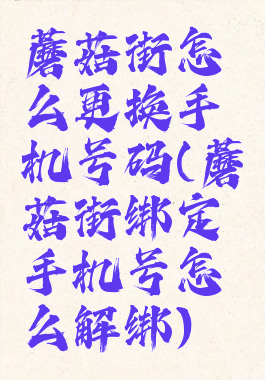 蘑菇街怎
么更换手
机号码(蘑
菇街绑定
手机号怎
么解绑)